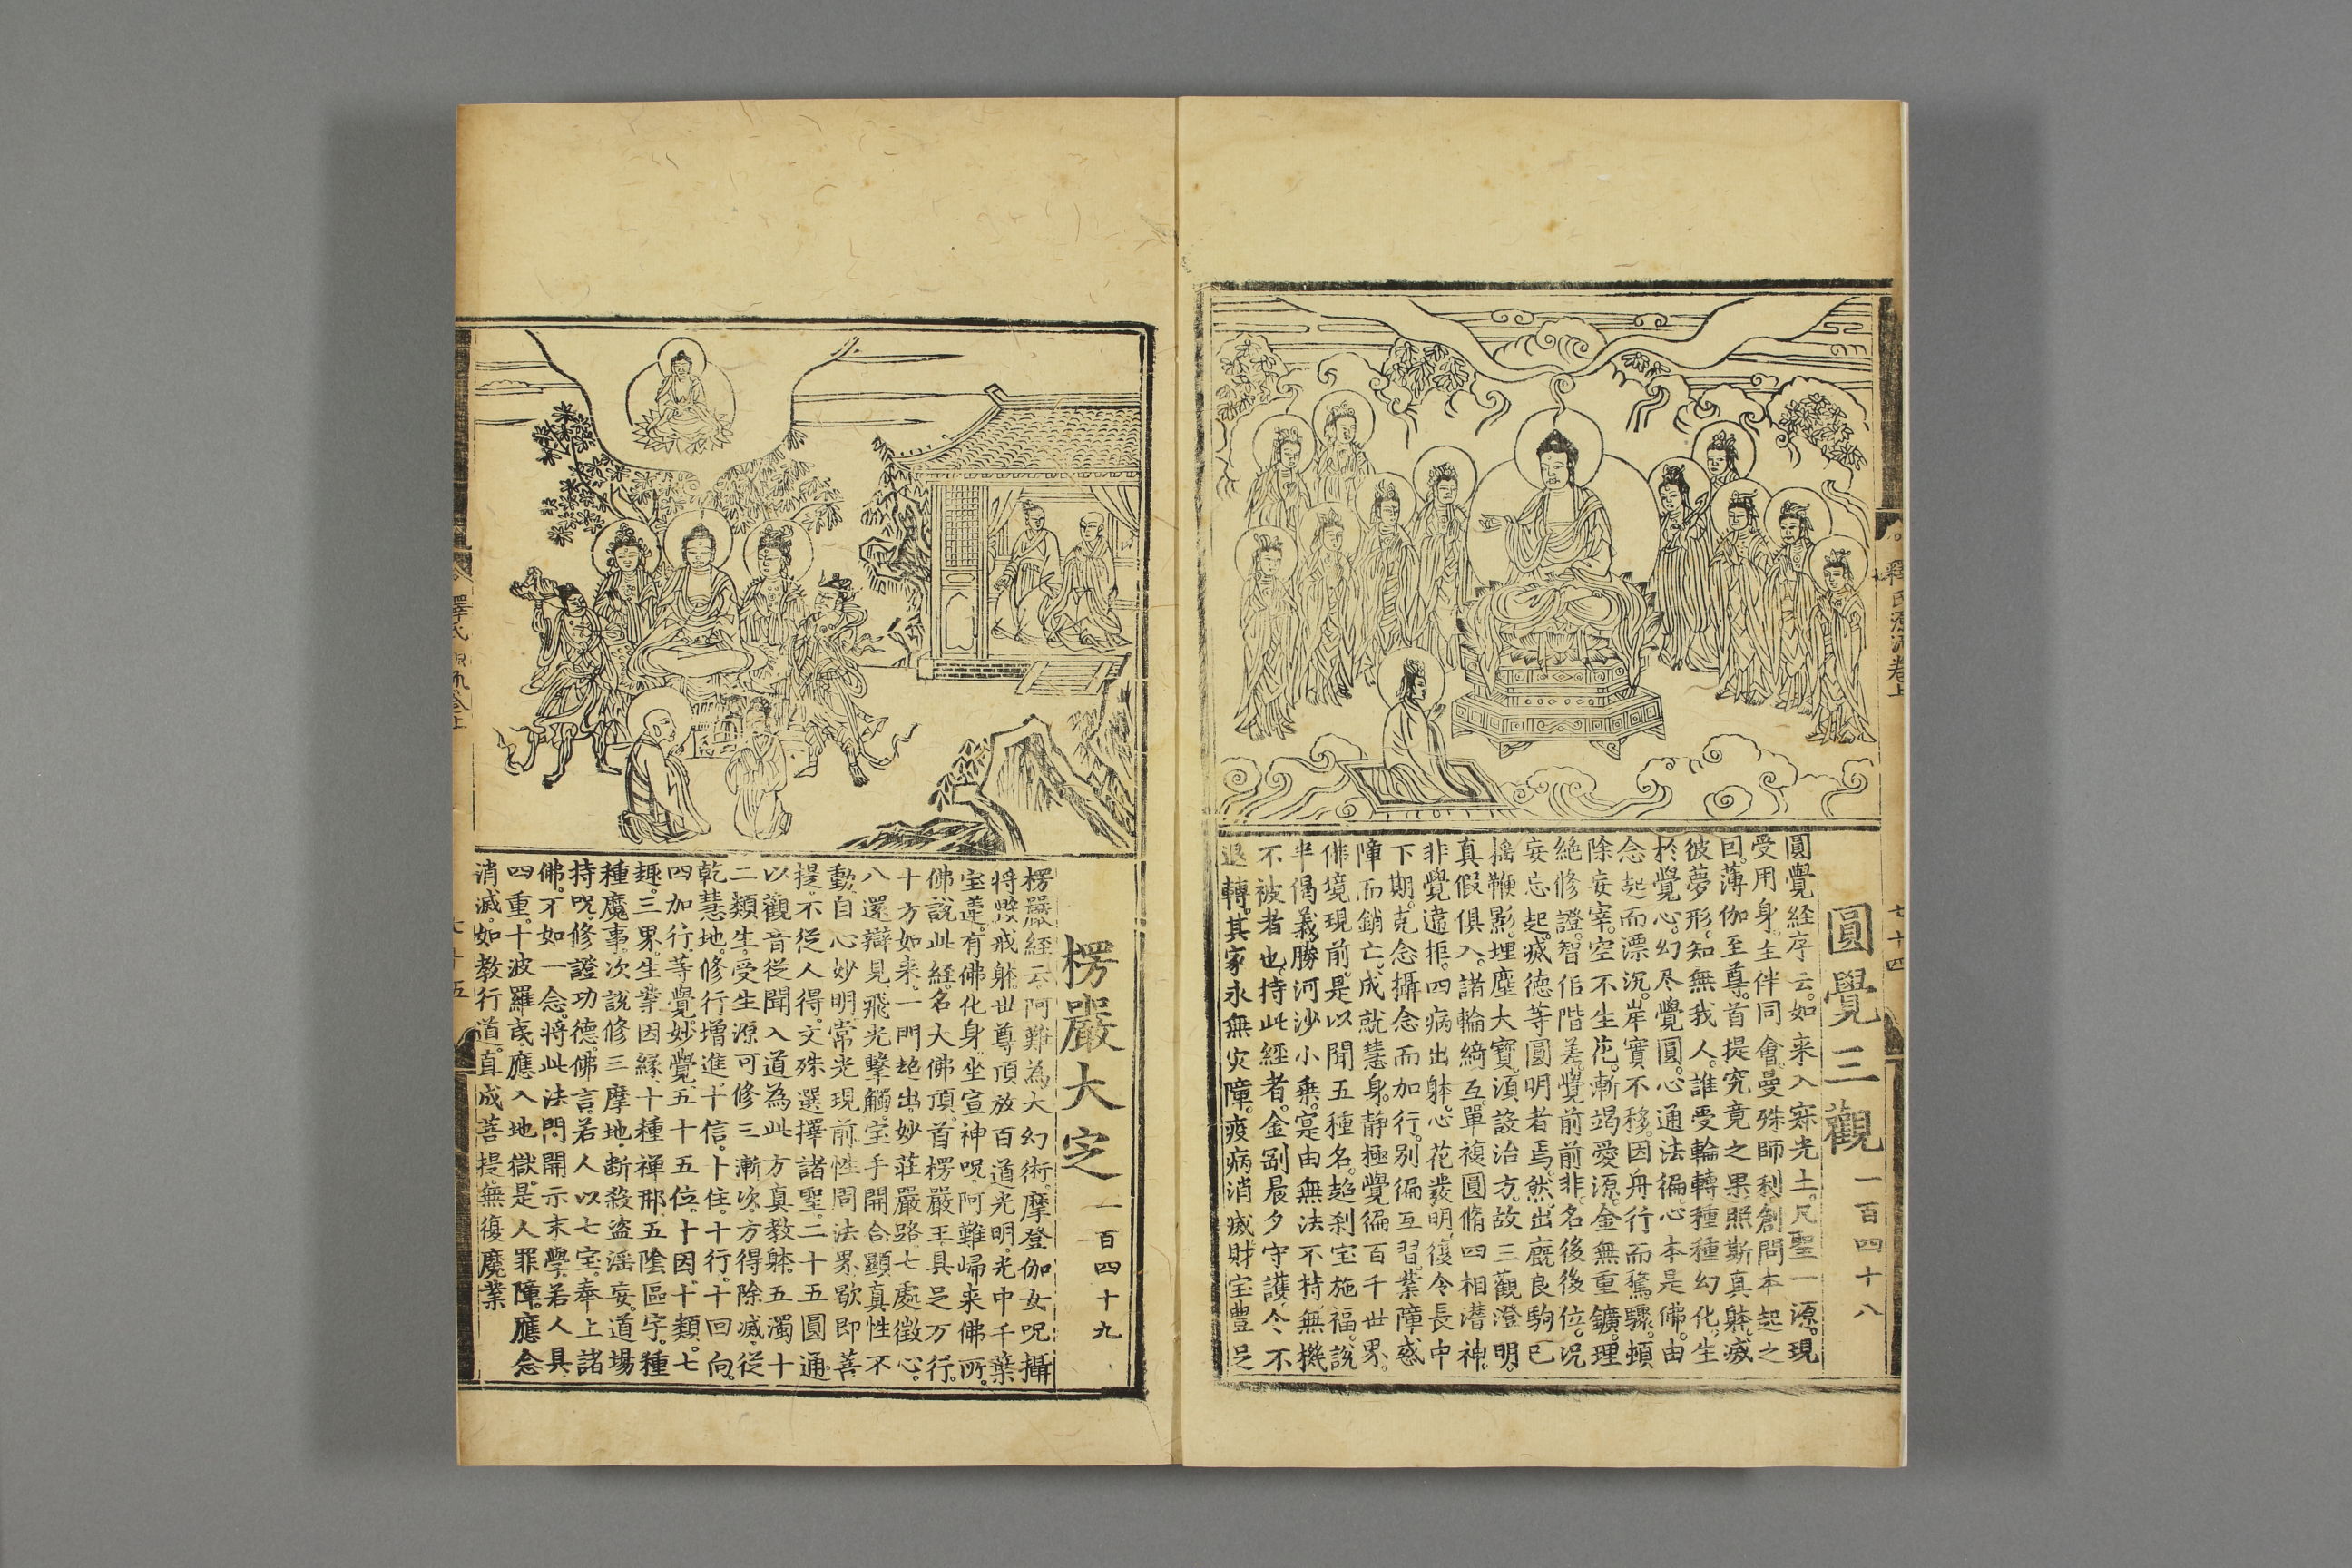 釋氏源流卷上
七十四
圓覺三觀 一百四十八
圓覺経序云。如来入寂光土。凡聖一源。現
受用身。主伴同會。曼殊師利。創問本起之
因。薄伽至尊。首提究竟之果。照斯真躰。滅
彼夢形。知無我人。誰受輪轉種種幻化。生
於覺心。幻尽覺圓。心通法徧。心本是佛。由
念起而漂沉。岸實不移。因舟行而騖驟。頓
除妄宰。空不生花。漸竭愛源。金無重鑛。理
絶修證。智佀階差。覺前前非。名後後位。况
妄忘起滅。德等圓明者焉。然出廐良駒。已
揺鞭影。埋塵大寳。湏設治方。故三觀澄明。
真假俱入。諸輪綺互。單複圓脩。四相潜神。
非覺違拒。四病出躰。心花發明。復令長中
下期。克念攝念而加行。别徧互習。業障惑
障而銷亡。成就慧身。静極覺徧。百千世界。
佛境現前。是以聞五種名。超刹宝施福。說
半偈義。勝河沙小乗。寔由無法不持。無機
不被者也。持此経者。金剛晨夕守護。令不
退轉。其家永無灾障。疫病消滅。財宝豊足
楞嚴大定 一百四十九
楞嚴経云。阿難為大幻術。摩登伽女呪攝
将毀戒躰。世尊頂放百道光明。光中千葉
宝蓮。有佛化身。坐宣神呪。阿難歸来佛所。
佛說此経。名大佛頂。首楞嚴王。具足万行。
十方如来。一門超出。妙荘嚴路。七處徴心。
八還辯見。飛光擊觸。宝手開合。顯真性不
動。自心妙明。常光現前。性周法界。歇即菩
提。不從人得。文殊選擇諸聖。二十五圓通。
以觀音從聞入道。為此方真教躰。五濁十
二類生。受生源。可修三漸次。方得除滅。從
乾慧地。修行增進。十信。十住。十行。十回向。
四加行。等覺。妙覺。五十五位。十因。十類。七
趣。三界。生業因縁。十種禅那。五陰區宇。種
種魔事。次說修三摩地。断殺盗滛妄。道場
持呪。修證功德。佛言。若人以七宝。奉上諸
佛。不如一念。将此法門。開示末學。若人具
四重。十波羅夷。應入地獄。是人罪障。應念
消滅。如教行道。直成菩提。無復魔業